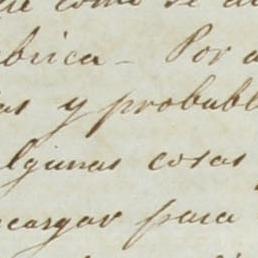 como se
brica - Por a
as y probabl
lgunas cosas
cargar para